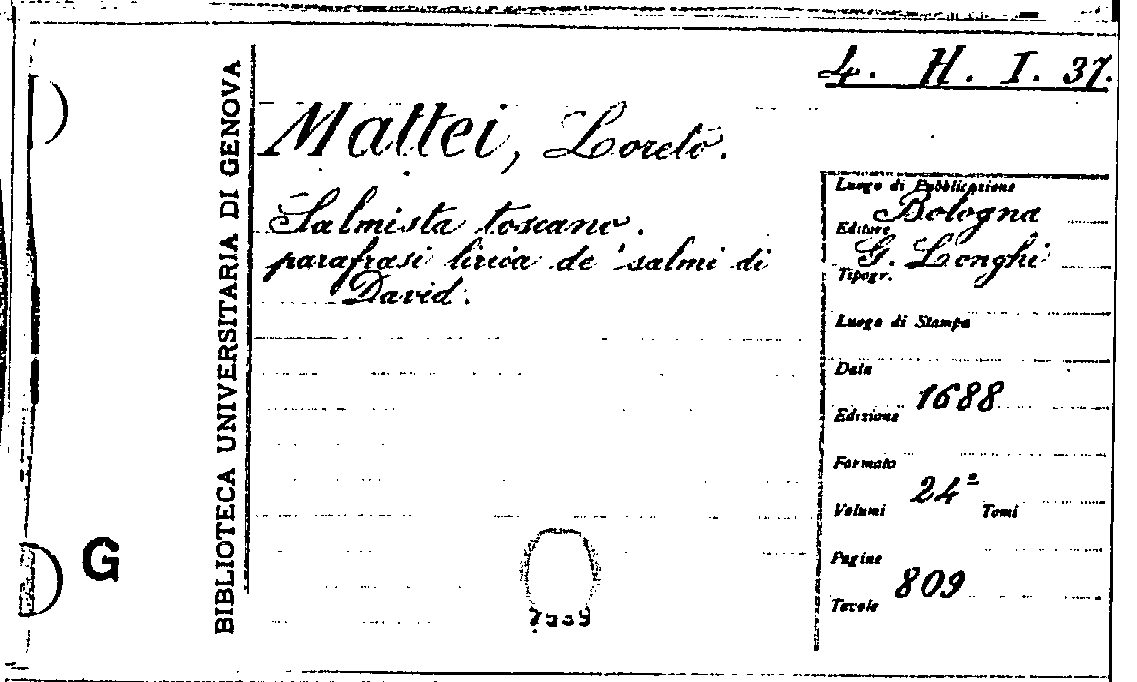 4. H. I. 37.
BIBLIOTECA UNIVERSITARIA DI GENOVA
Mattei, Loreto.
Salmista toscano.
parafrasi lirica de' salmi di
David.
Luogo di Pubblicazione
Bologna
Editore
G. Longhi
Tipogr.
Luogo di Stampa
Data
1688
Edizione
Formato
24º
Volumi Tomi
Pagine
809
Tavole
G